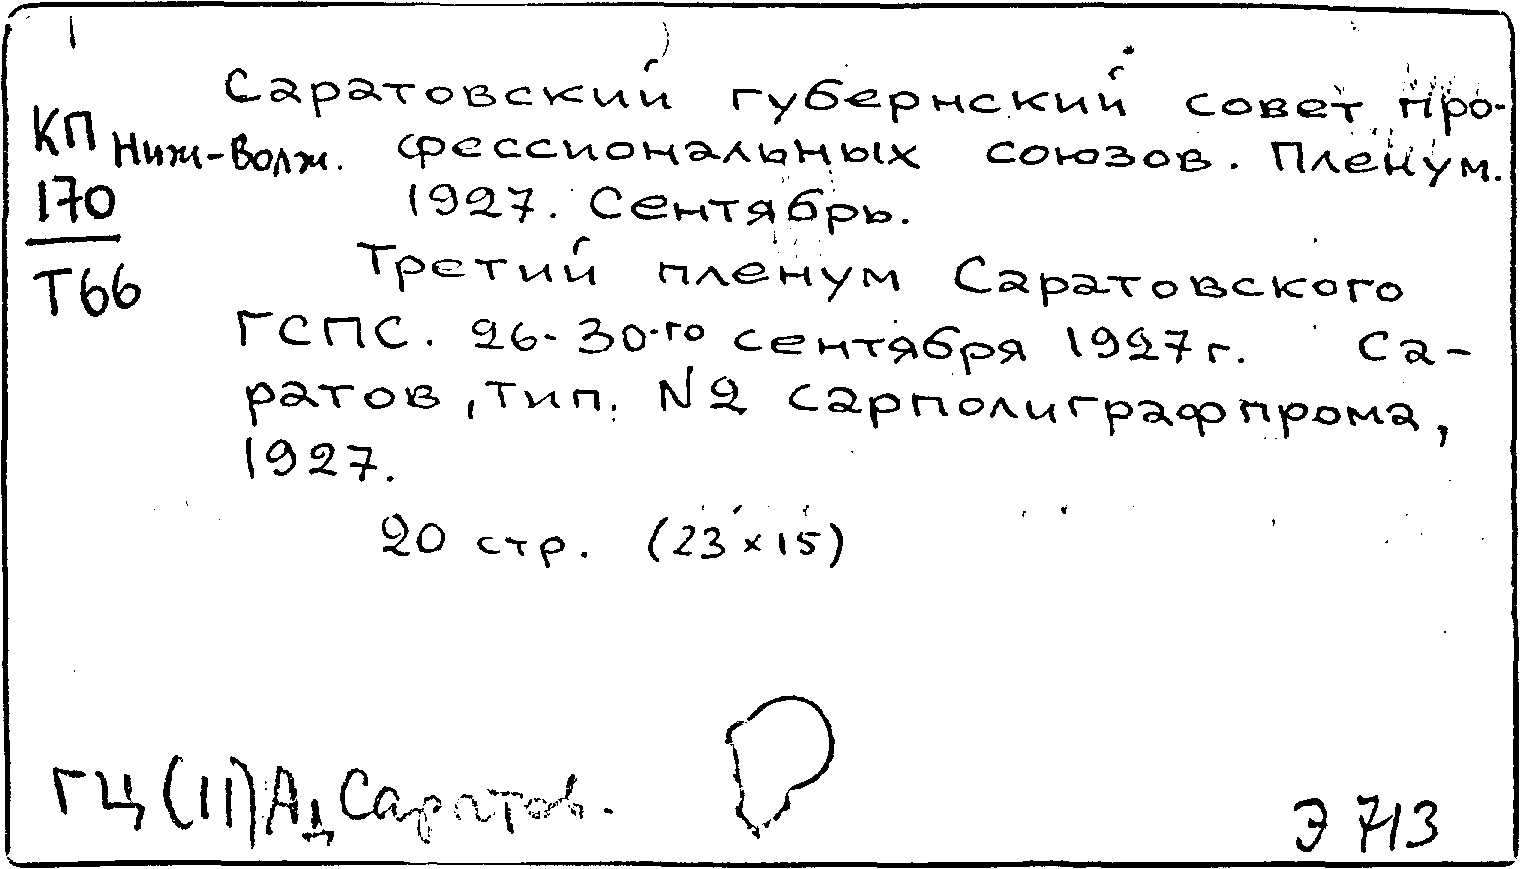 Саратовский губернский совет про-
КП Ниж-Волж. фессиональных союзов. Пленум.
170 1927. Сентябрь.
Т66 Третий пленум Саратовского
ГСПС. 26-30-го сентября 1927 г. Са-
ратов, тип. N2 Сарполиграфпрома,
1927.
20 стр. (23×15)
ГЦ (II) Ад Саратов.
Э 713